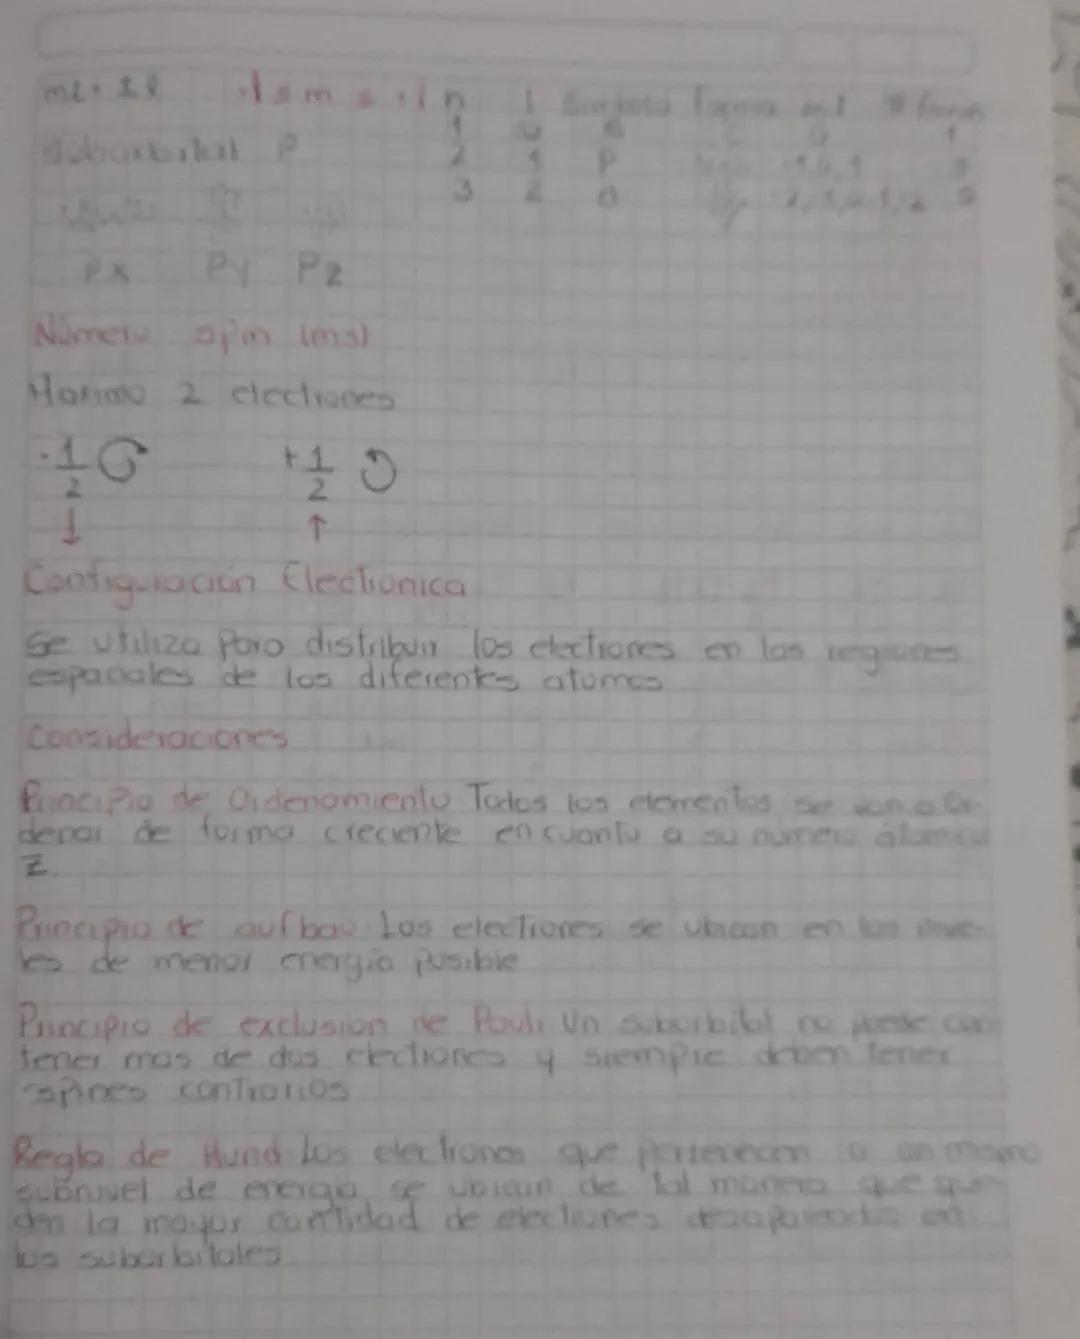 n l Simbolo forma ml # formas
1 0 S 0 1
suborbital P
2 1 P -1,0,1 3
3 2 5
Px Py Pz
Número spin (ms)
Maximo 2 electrones
-1/2 +1/2
↓ ↑
Configuración Electronica
Se utiliza para distribuir los electrones en las regiones
espaciales de los diferentes atomos
Consideraciones
Principio de Ordenamiento Todos los elementos se van a Or-
denar de forma creciente en cuanto a su número átomico
Z.
Principio de aufbau Los electrones se ubican en los nive-
les de menor energia posible
Principio de exclusion de Pauli Un suborbital no puede con
tener mas de dos electrones y siempre deben tener
spines contrarios
Regla de Hund Los electrones que pertenecen a un mismo
subnivel de energia se ubican de tal manera que que
den la mayor cantidad de electrones desapareados en
los suborbitales